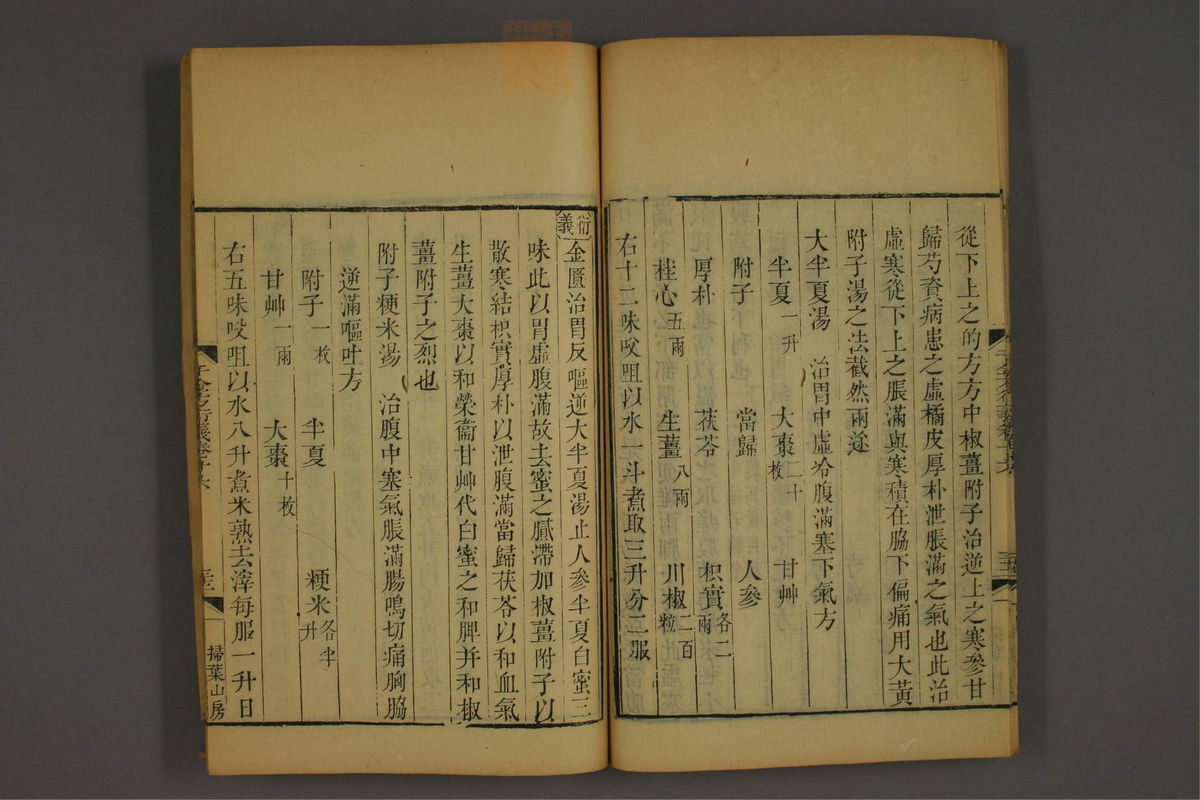 從下上之的方方中椒薑附子治逆上之寒參甘
歸芍資病患之虛橘皮厚朴泄脹滿之氣也此治
虛寒從下上之脹滿與寒積在脇下偏痛用大黃
附子湯之法截然兩途
大半夏湯　治胃中虛冷腹滿塞下氣方
半夏一升　大棗二十枚　甘艸
附子　當歸　人參
厚朴　茯苓　枳實各二兩
桂心五兩　生薑八兩　川椒二百粒
右十二味㕮咀以水一斗煮取三升分二服
衍義　金匱治胃反嘔逆大半夏湯止人參半夏白蜜三
味此以胃虛腹滿故去蜜之膩滯加椒薑附子以
散寒結枳實厚朴以泄腹滿當歸茯苓以和血氣
生薑大棗以和榮衞甘艸代白蜜之和脾并和椒
薑附子之烈也
附子粳米湯　治腹中塞氣脹滿腸鳴切痛胸脇
逆滿嘔吐方
附子一枚　半夏　粳米各半升
甘艸一兩　大棗十枚
右五味㕮咀以水八升煮米熟去滓每服一升日
千金方衍義卷十六
掃葉山房